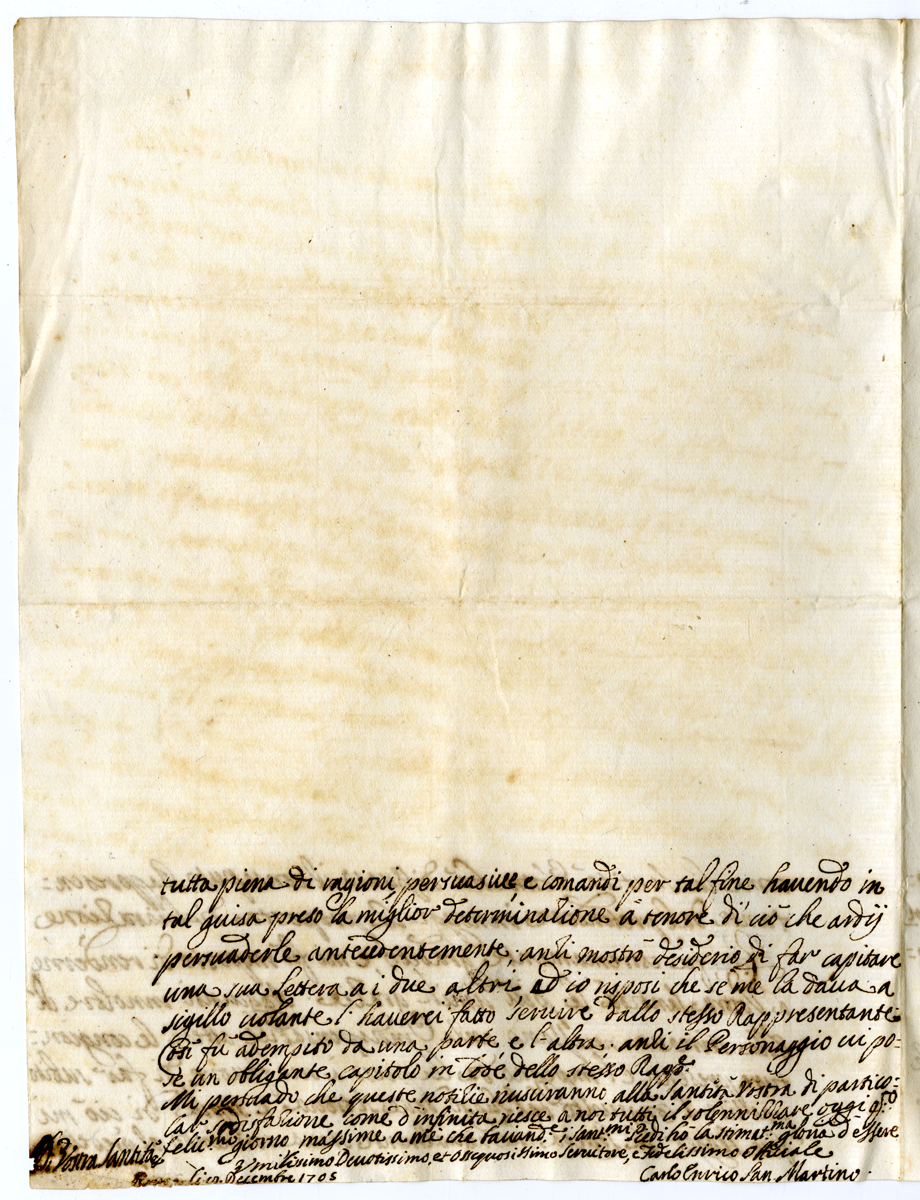 tutta piena di ragioni persuasive e comandi per tal fine havendo in
tal guisa preso la miglior determinazione à tenore di ciò che ardij
persuaderle antecedentemente, anzi mostrò desiderio di far capitare
una sua Lettera a i due altri ed io risposi che se me la dava a
sigillo volante l'haverei fatto servire dallo stesso Rappresentante
fù adempito da una parte e l'altra. anzi il Personaggio vi po=
se un obligante capitolo in lode dello stesso
Mi persuado che queste notizie riusciranno alla Santità Vostra di partico=
lar sodisfazione come d'infinita riesce a noi tutti il solennizzare oggi
felic.mo giorno massime a me che i Piedi hò la gloria d'essere
Di Vostra Santità
Umilissimo Devotissimo, et Ossequiosissimo Servitore, e Fidelissimo Offiziale
Decembre 1705
Carlo Enrico San Martino